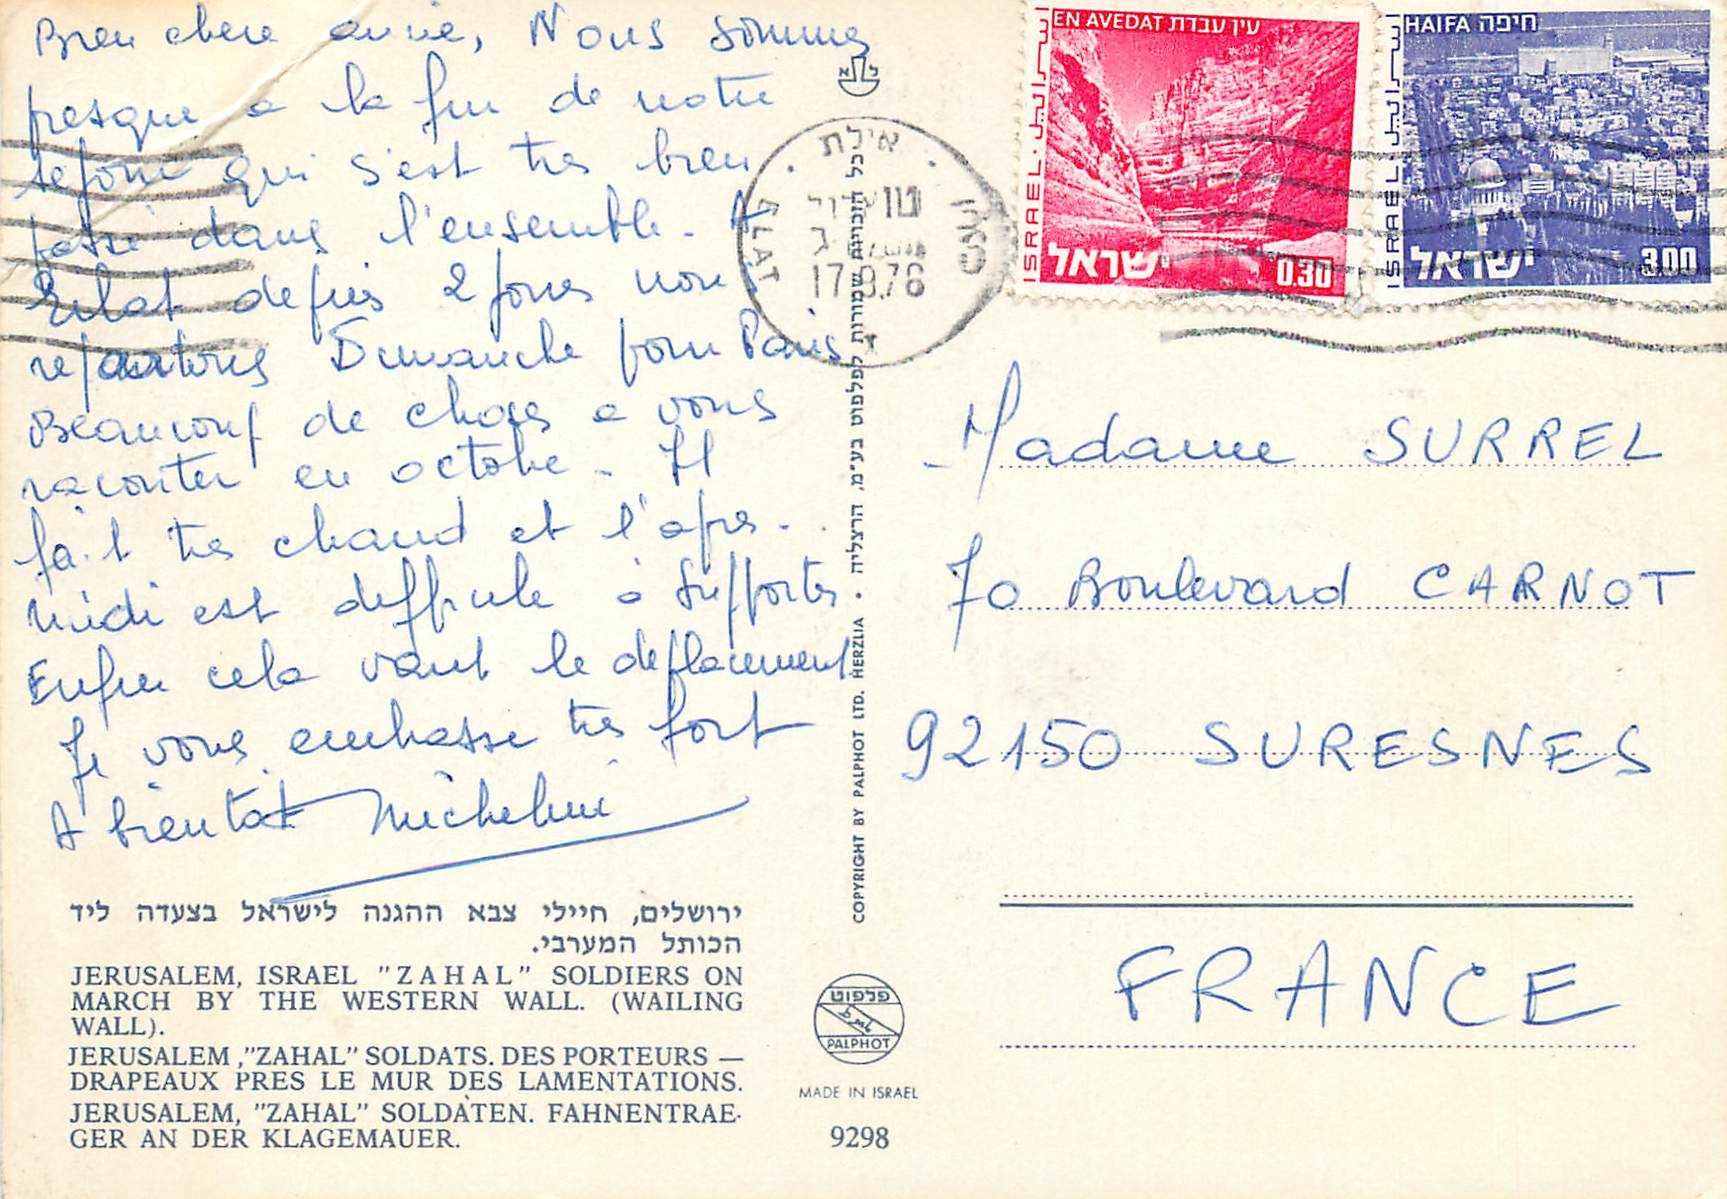 Bien chère amie, Nous sommes
presque a la fin de notre
sejour qui s'est tres bien
passé dans l'ensemble. A
Eilat depuis 2 jours nous
repartons Dimanche pour Paris
Beaucoup de choses a vous
raconter en octobre. Il
fait tres chaud et l'apres-
midi est difficile à supporter.
Enfin cela vaut le déplacement
Je vous embrasse tres fort
A bientôt Micheline
ירושלים, חיילי צבא ההגנה לישראל בצעדה ליד
הכותל המערבי.
JERUSALEM, ISRAEL "ZAHAL" SOLDIERS ON
MARCH BY THE WESTERN WALL. (WAILING
WALL).
JERUSALEM ,"ZAHAL" SOLDATS. DES PORTEURS —
DRAPEAUX PRES LE MUR DES LAMENTATIONS.
JERUSALEM, "ZAHAL" SOLDATEN. FAHNENTRAE-
GER AN DER KLAGEMAUER.
כל הזכויות שמורות לפלפוט בע"מ, הרצליה •
COPYRIGHT BY PALPHOT LTD. HERZLIA
פלפוט
PALPHOT
MADE IN ISRAEL
9298
אילת
ELAT
EN AVEDAT עין עבדת
ISRAEL
اسرائيل
ישראל
0.30
HAIFA חיפה
ISRAEL
اسرائيل
ישראל
3.00
Madame SURREL
70 Boulevard CARNOT
92150 SURESNES
FRANCE